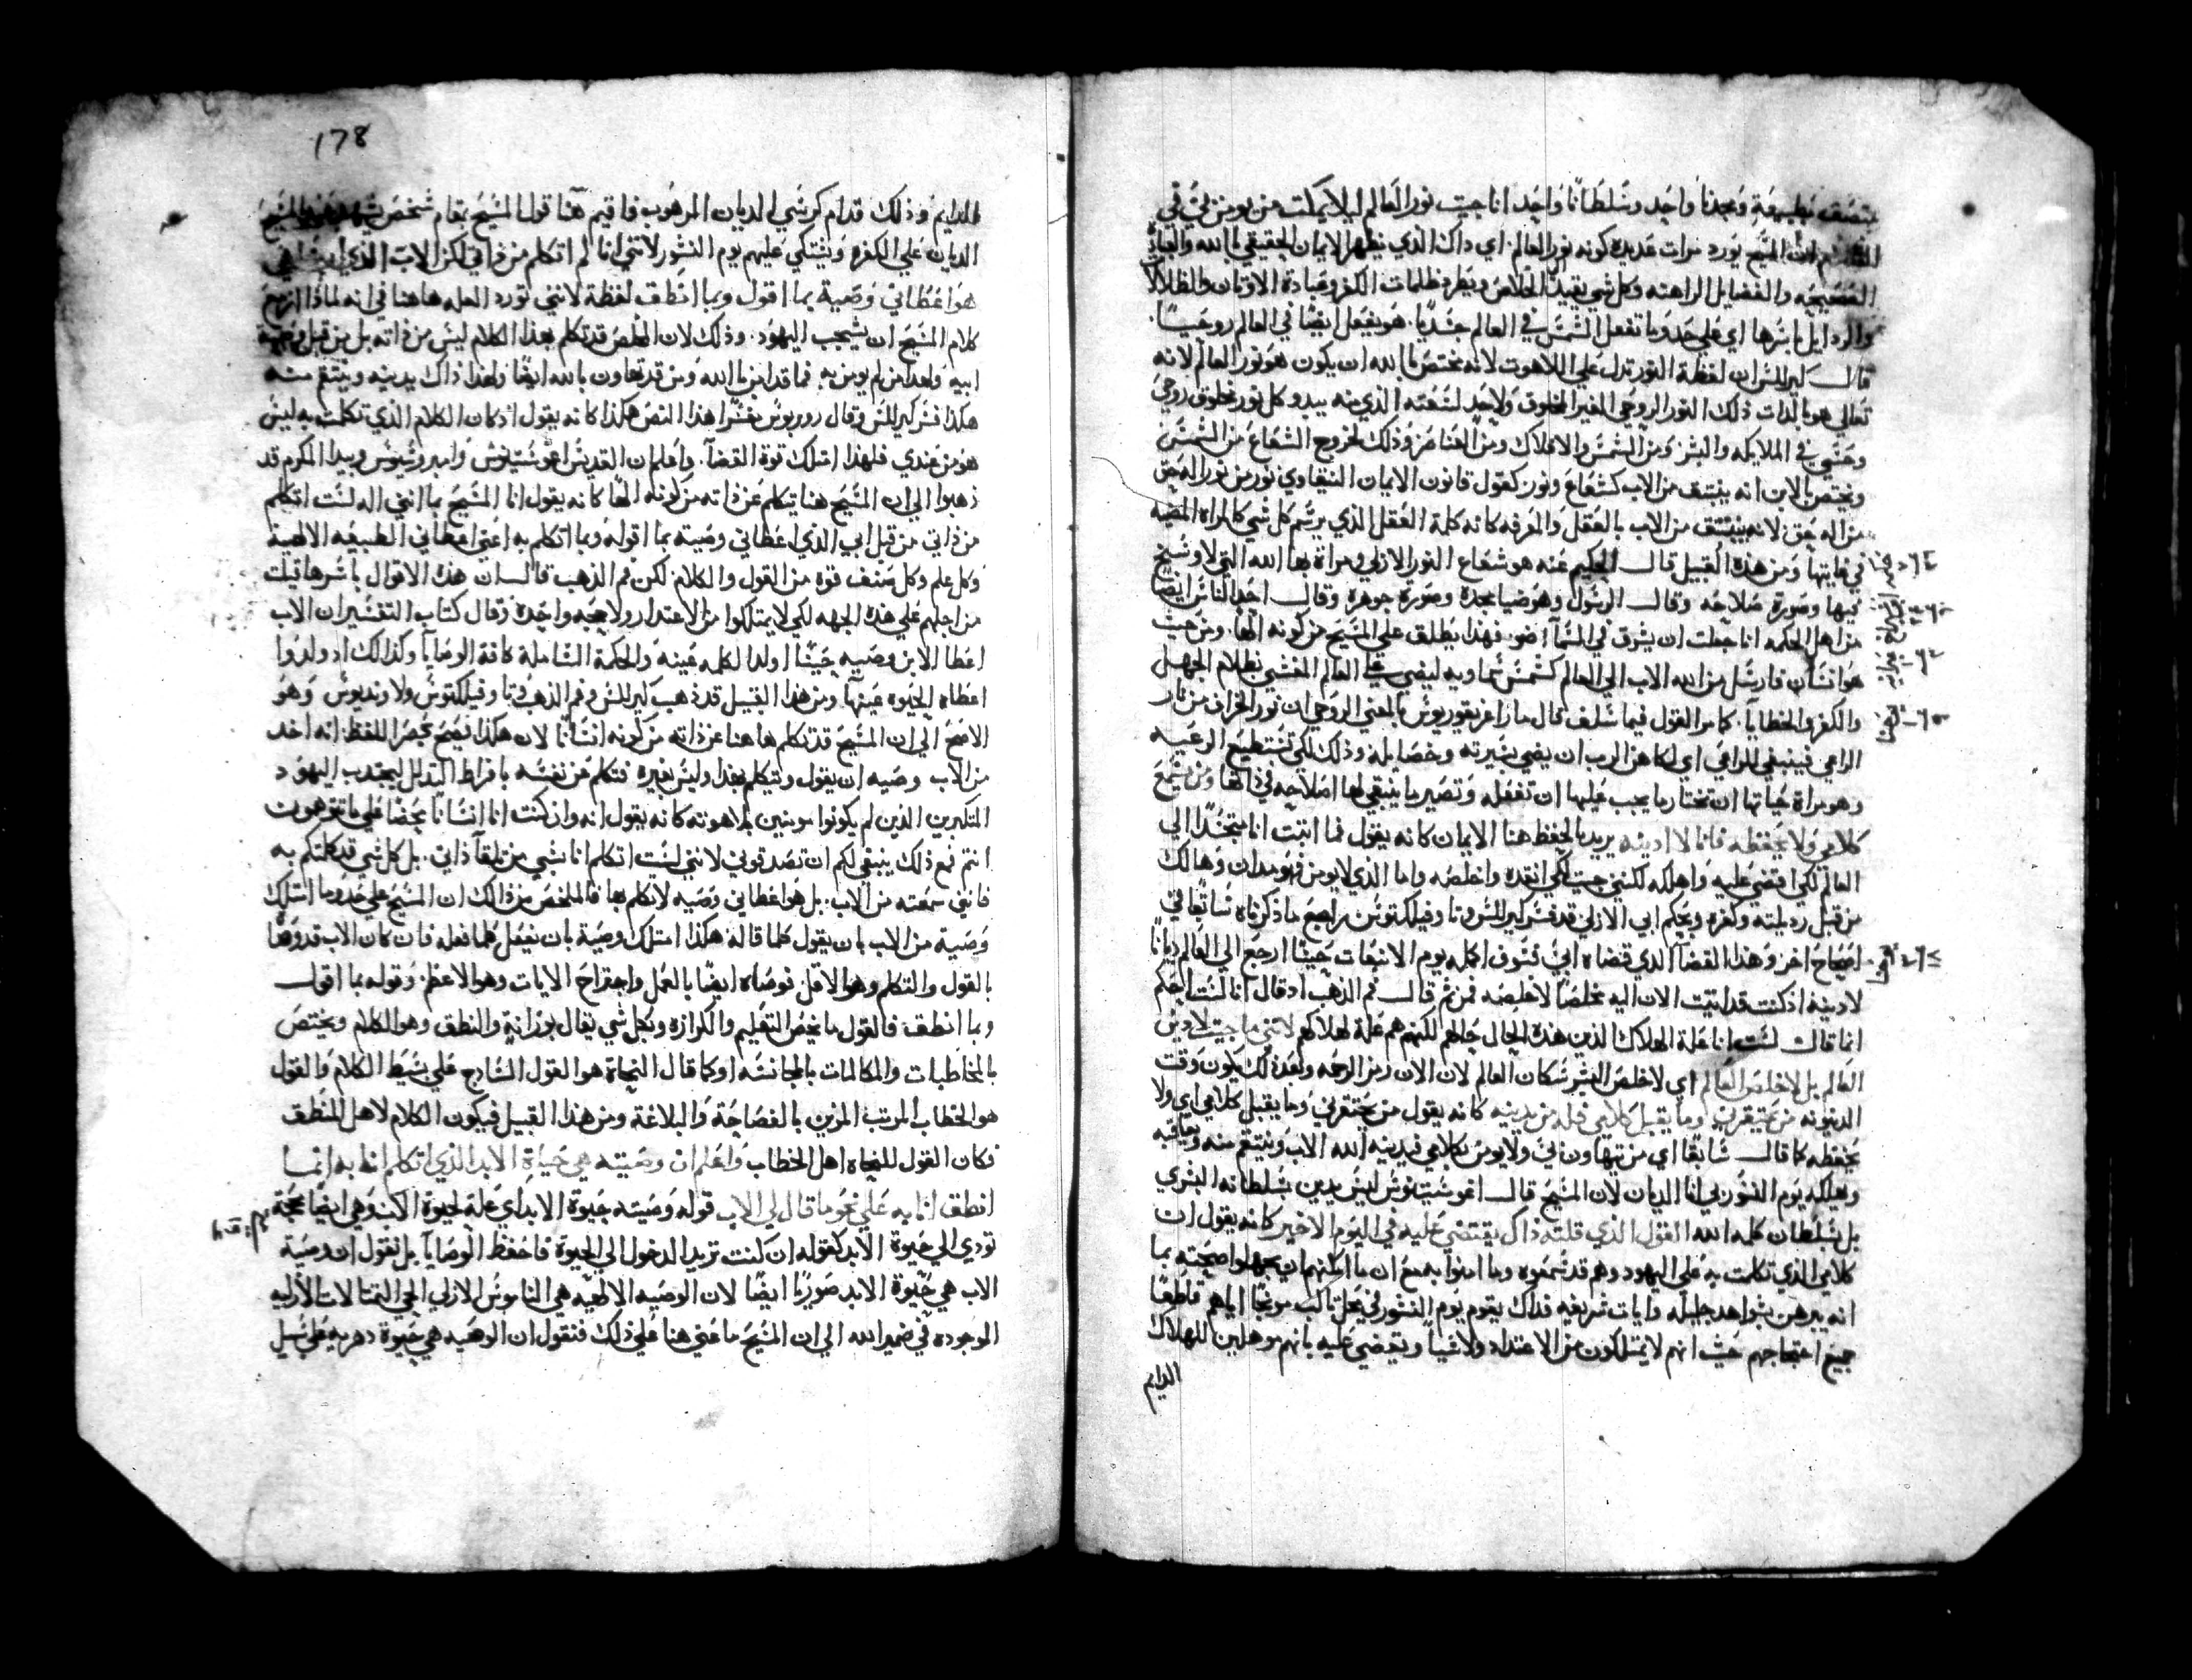 بتصف بطبيعة ومجدنا واحد وسلطاننا واحد انا جيت نور العالم ليلا يمكث من يومن بي في
ان المسيح يورد مرات عديده كونه نور العالم. اي داك الذي يظهر الايمان الحقيقي بالله والعبادة
الصحيحه والفضايل الراهنه وكل شي يفيد الخلاص ويطرد ظلمات الكفر وعبادة الاوتان والظلالات
والردايل باسرها اي علي حدو ما تفعل الشمس في العالم جسديا. هو يفعل ايضا في العالم روحيا.
قال كيرللس ان لفظة النور تدل علي اللاهوت لانه مختص بالله ان يكون هو نور العالم لانه
تعالي هو بالدات ذلك النور الروحي الغير المخلوق ولاجل لسعته الذي منه يبدو كل نور مخلوق روحي
وحسي في الملايكه والبشر ومن الشمس والافلاك ومن العناصر وذلك لخروج الشعاع من الشمس
ويختص بالابن انه ينبتق من الاب كشعاع ونور كقول قانون الايمان النيقاوي نور من نور اله حق
من اله حق لانه ينبتق من الاب بالعقل والمعرفه كانه كلمة العقل الذي يرسم كل شي كالمراه المضيه
في غايتها ومن هذه القبيل قال الحكيم عنه هو شعاع النور الازلي ومراة بها الله التي لا وسخ
فيها وصورة صلاحه وقال الرسول وهو ضيا مجده وصورة جوهره وقال احد الناس ايضا
من اهل الحكمه انا جعلت ان يشرق في السمآ ضو. فهذا يطلق علي المسيح من كونه الها. ومن حيث
هو انسان فارسل من الله الاب الي العالم كشمس سماويه ليضي العالم المغشي بظلام الجهل
والكفر والخطايا. كما مر القول فيما سلف قال مار اغريغوريوس بالمعني الروحي ان نور الخراف من نار
الراعي فينبغي للراعي اي لكاهن الرب ان يضي بسيرته وخصايله وذلك لكي تستطيع الرعيه
وهو مراة حياتها ان تختار ما يجب عليها ان تفعله وتصير ما ينبغي لها اصلاحه في ذاتها ومن يسمع
كلامي ولا يحفظه فانا لا ادينه يريد بالحفظ هنا الايمان كانه يقول فما اتيت انا متجسدا الي
العالم لكي اقضي عليه واهلكه لكنني جيت لكي انقده واخلصه واما الذي لا يومن فهو مدان وهالك
من قبل رديلته وكفره وبحكم ابي الازلي قد فسر كيرللس وتاوفيلكتوس راجع ما ذكرناه سابقا في
اصحاح اخر وهذا القضآ الذي قضاه ابي فسوف اكمله يوم الانبعات حيثا ارجع الي العالم ديانا
لادينه اذ كنت قد اتيت الان اليه مخلصا لاخلصه فمن ثم قال فم الذهب اد قال انا لست احكم
انما قال لست انا علة الهلاك الذين هذه الحال حالهم لكنهم هم علة لهلاكهم لانني ما جيت لادين
العالم بل لاخلص العالم اي لاخلص البشر سكان العالم لان الان زمن الرحمه وبعد ذلك يكون وقت
الدينونه من يحتقرني وما يقبل كلامي فله من يدينه كانه يقول من يحتقرني وما يقبل كلامي اي ولا
يحفظه كما قال سابقا اي من يتهاون بي ولا يومن بكلامي فيدينه الله الاب وينتقم منه ويعاقبه
ويهلكه يوم النشور بي انا الديان لان المسيح قال اغوستينوس ليس يدين بسلطانه البشري
بل بسلطان كلمه الله القول الذي قلته ذاك يقتضي عليه في اليوم الاخير كانه يقول ان
كلامي الذي تكلمت به علي اليهود وهم قد سمعوه وما امنوا به مع ان ما امكنهم ان يجهلوا صحته بما
انه يبرهن بشواهد جليله وايات شريفه فداك يقوم يوم النشور في محل تالب موبخا اياهم قاطعا
جميع احتجاجهم حيث انهم لا يمتلكون من الاعتدار ولا شيا ويقضي عليه بانهم موهلين للهلاك
الدايم
178
الدايم وذلك قدام كرسي الديان المرهوب فاقيم هنا قول المسيح بقام شخص
الديان علي الكفره ويشتكي عليهم يوم النشور لانني انا لم اتكلم من ذاتي لكن الاب الذي ارسلني
هو اعطاني وصية بما اقول وبما انطق لفظة لانني تورد العله هاهنا في انه لماذا ازمع
كلام المسيح ان يشجب اليهود. وذلك لان المخلص قد تكلم بهذا الكلام ليس من ذاته بل من قبل وصية
ابيه ولهذا من لم يومن به فما قد امن بالله ومن قد تهاون بالله ايضا ولهذا ذاك يدينه وينتقم منه
هكذا فسر كيرللس وقال روربوس مفسرا هذا النص هكذا كانه يقول اذ كان الكلام الذي تكلمت به ليس
هو من عندي فلهذا امتلك قوة القضآ. واعلم ان القديس اغوستينوس وامبروسيوس وبيدا المكرم قد
ذهبوا الي ان المسيح هنا يتكلم عن ذاته من كونه الها كانه يقول انا المسيح بما انني اله لست اتكلم
من ذاتي من قبل ابي الذي اعطاني وصيته بما اقوله وبما اتكلم به اعني اعطاني الطبيعه الالهية
وكل علم وكل صنف قوه من القول والكلام. لكن فم الذهب قال ان هذه الاقوال باسرها قيلت
من اجلهم علي هذه الجهه لكي لا يمتلكوا من الاعتدار ولا جهه واحدة وقال كتاب التفسير ان الاب
اعطا الابن وصيه حيثا اولد الكلمه عينه والحكمة الشاملة كافة الوصايا وكذالك اد ولدوا
اعطاه الحيوه عينها ومن هذا القبيل قد ذهب كيرللس وفم الذهب وتاوفيلكتوس ولاونديوس وهو
الاصح الي ان المسيح قد تكلم هاهنا عن ذاته من كونه انسانا لان هكذا فيصح بحصر اللفظ. انه اخد
من الاب وصيه ان يقول ويتكلم بهذا وليس بغيره فتكلم عن نفسه بافراط التدلل ليجدب اليهود
المتكبرين الذين لم يكونوا مومنين بلاهوته كانه يقول انه وان كنت انا انسانا محضا علي ما تتوهموت
انتم فمع ذلك ينبغي لكم ان تصدقوني لانني لست اتكلم انا بشي من تلقآ ذاتي. بل كل شي قد كلمتكم به
فانني سمعته من الاب. بل هو اعطاني وصيه لاتكلم بها فالملخص من ذالك ان المسيح علي حدو ما امتلك
وصية من الاب بان يقول كلما قاله هكذا امتلك وصية بان يفعل كلما فعله فان كان الاب قد وصا
بالقول والتكلم وهو الاقل فوصاه ايضا بالعمل واجتراح الايات وهو الاعظم. وقوله بما اقول
وبما انطق. فالقول ما يخص التعليم والكرازه وبكل شي يقال برزانة والنطق وهو الكلام ويختص
بالمخاطبات والمكالمات بالمجانسه او كما قال النحاة هو القول السادج علي بسيط الكلام والقول
هو الخطاب المرتب المزين بالفصاحة والبلاغة ومن هذا القبيل فيكون الكلام لاهل المنطق
فكان القول للنحاه اهل الخطاب واعلم ان وصيته هي حياة الابد الذي اتكلم انا به انما
انطق انا به علي نحو ما قال لي الاب قوله وصيته حيوة الابد اي علة لحيوة الابد وهي ايضا محجة
تودي الي حيوة الابد كقوله ان كنت تريد الدخول الي الحيوة فاحفظ الوصايا بل نقول ان وصية
الاب هي حيوة الابد صوريا ايضا لان الوصيه الالهيه هي الناموس الازلي الحي التمتالات الازليه
الموجوده في ضمير الله الي ان المسيح ما عني هنا علي ذلك فنقول ان الوصيه هي حيوة دهريه علي سبيل